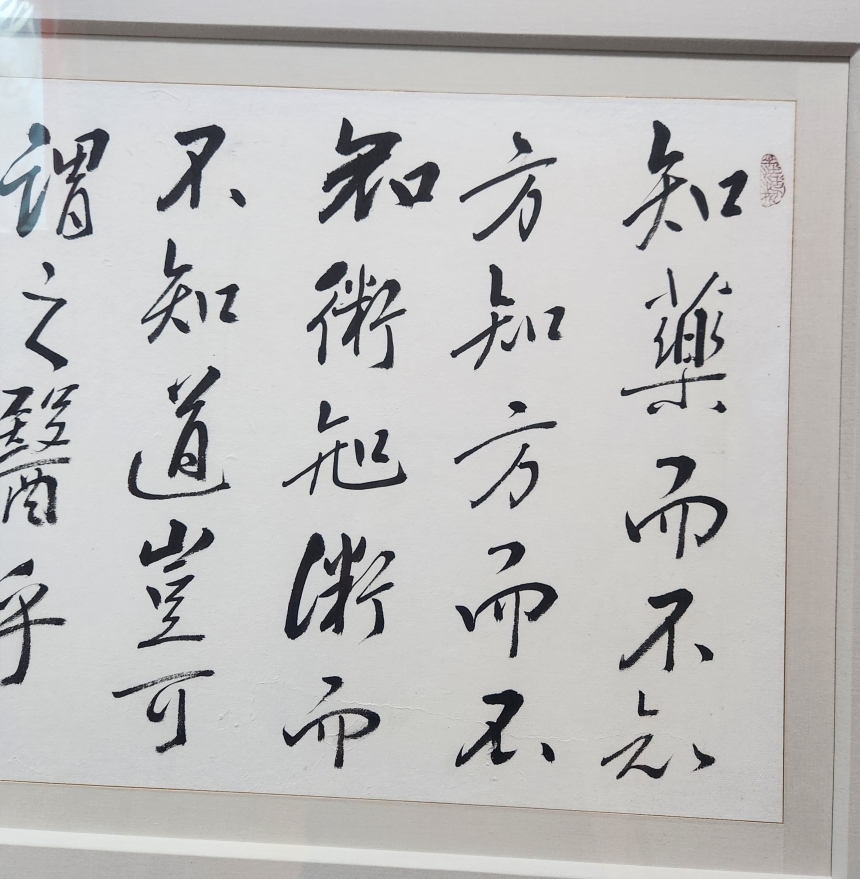 知藥而不知
方知方而不
知術知術而
不知道豈可
謂之醫乎